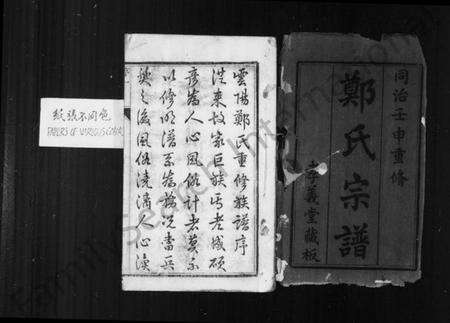 同治壬申重修
鄭氏宗譜
孝義堂藏板
雲陽鄭氏重修族譜序
從來故家巨族焉老成碩
彥為人心風俗計者莫不
以修明譜系為務況當兵
燹之後風俗澆漓人心渙
紙張不同色
PAPERS OF VARIOUS COLORS